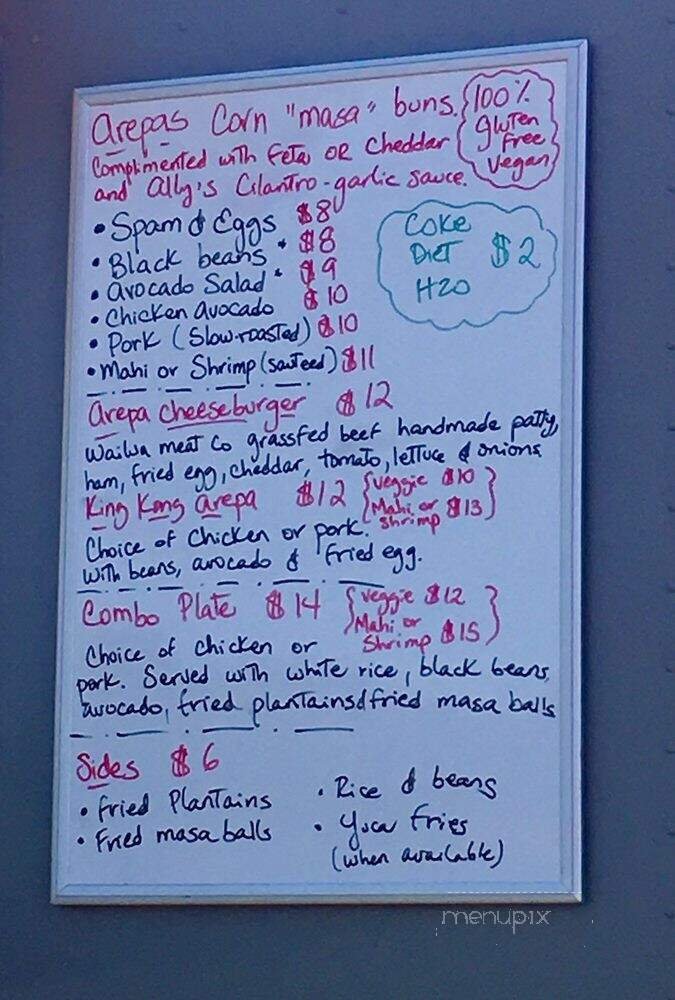 Arepas Corn "masa" buns.
100% gluten free vegan
Complimented with Feta OR Cheddar
and Ally's Cilantro-garlic sauce.
• Spam & Eggs $8
• Black beans * $8
• Avocado Salad * $9
• Chicken Avocado $10
• Pork (Slow-roasted) $10
• Mahi or Shrimp (sauteed) $11
Coke
Diet $2
H2O
Arepa cheeseburger $12
Wailua meat Co grassfed beef handmade patty,
ham, fried egg, cheddar, tomato, lettuce & onions
King Kong arepa $12 {veggie $10
Mahi or shrimp $13}
Choice of Chicken or pork.
With beans, avocado & fried egg.
Combo Plate $14 {veggie $12
Mahi or Shrimp $15}
Choice of chicken or
pork. Served with white rice, black beans,
avocado, fried plantains & fried masa balls
Sides $6
• Fried Plantains
• Fried masa balls
• Rice & beans
• Yuca fries
(when available)
menupix